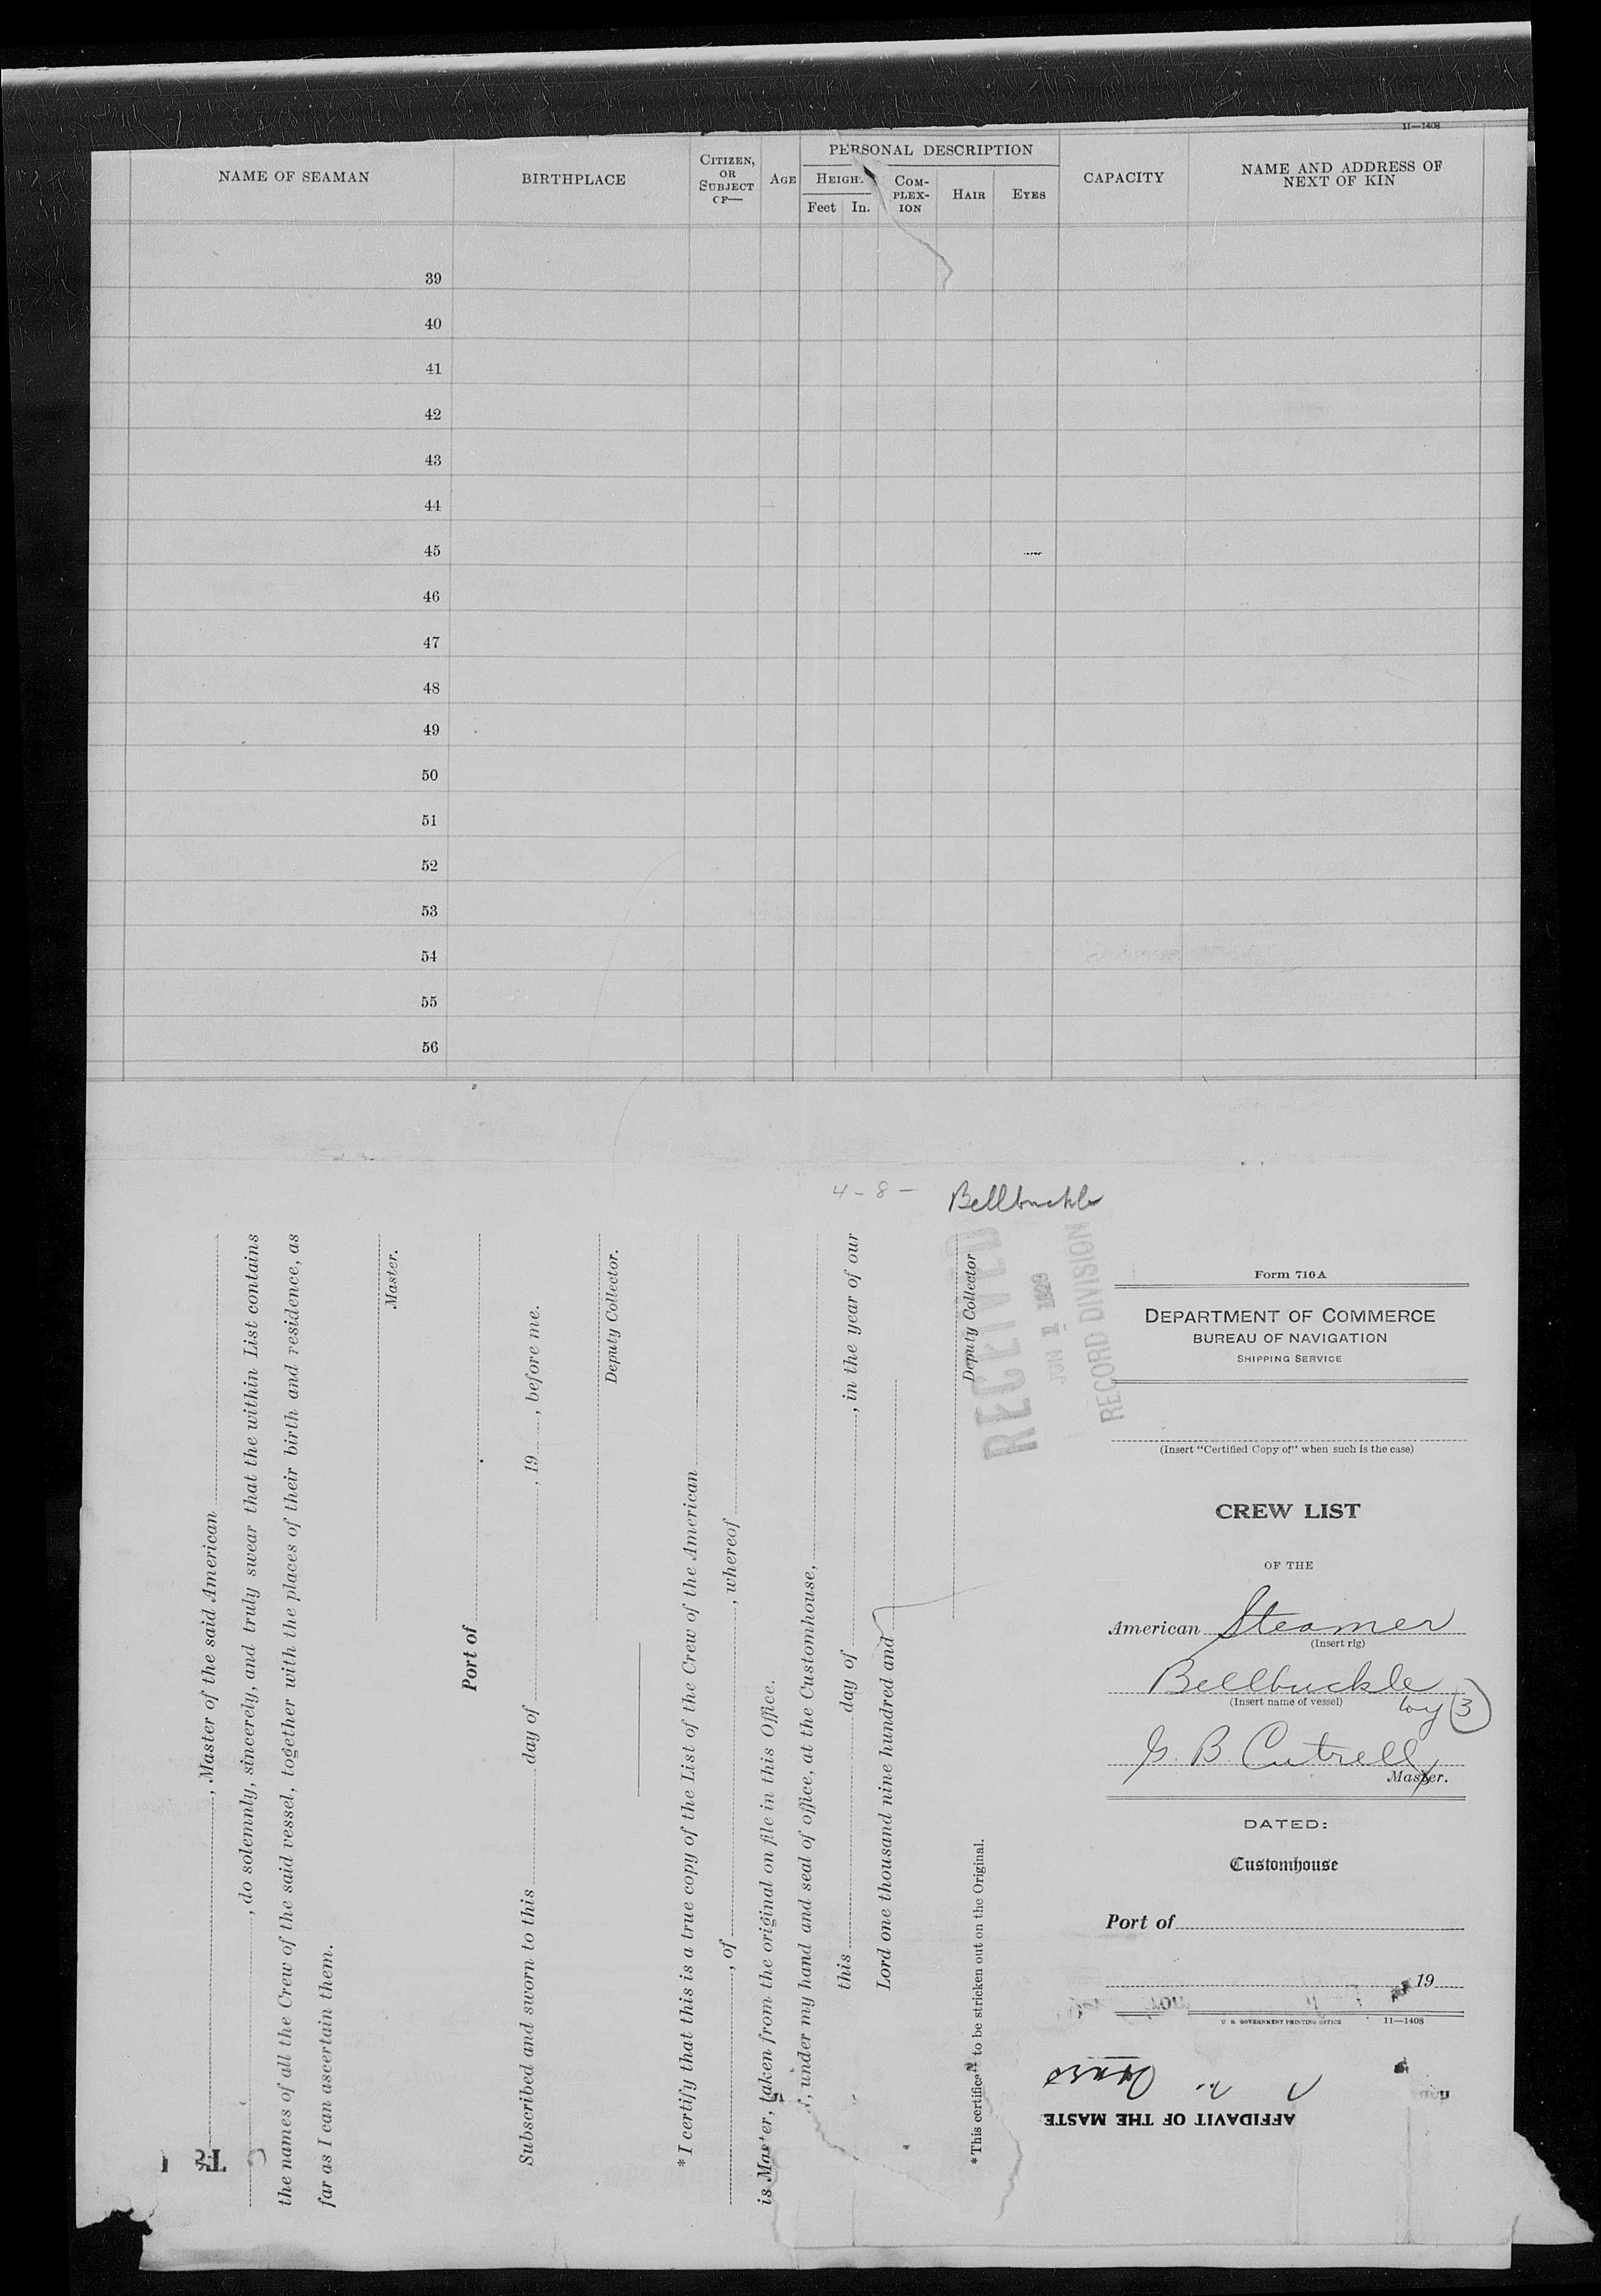 11—1408
NAME OF SEAMAN
BIRTHPLACE
CITIZEN, OR SUBJECT OF—
AGE
PERSONAL DESCRIPTION
HEIGHT
Feet In.
COM-
PLEX-
ION
HAIR
EYES
CAPACITY
NAME AND ADDRESS OF
NEXT OF KIN
39
40
41
42
43
44
45
46
47
48
49
50
51
52
53
54
55
56
4-8- Bellbuckle
, Master of the said American
, do solemnly, sincerely, and truly swear that the within List contains
the names of all the Crew of the said vessel, together with the places of their birth and residence, as
far as I can ascertain them.
Master.
Port of
Subscribed and sworn to this day of , 19 , before me.
Deputy Collector.
*I certify that this is a true copy of the List of the Crew of the American
, of , whereof
is Master, taken from the original on file in this Office.
, under my hand and seal of office, at the Customhouse,
this day of , in the year of our
Lord one thousand nine hundred and
Deputy Collector
*This certificate to be stricken out on the Original.
RECEIVED
JUN 1929
RECORD DIVISION
Form 710A
DEPARTMENT OF COMMERCE
BUREAU OF NAVIGATION
SHIPPING SERVICE
(Insert "Certified Copy of" when such is the case)
CREW LIST
OF THE
American Steamer
(Insert rig)
Bellbuckle
(Insert name of vessel)
by 3
G. B. Cutrell
Master.
DATED:
Customhouse
Port of
19
U. S. GOVERNMENT PRINTING OFFICE 11—1408
AFFIDAVIT OF THE MASTE